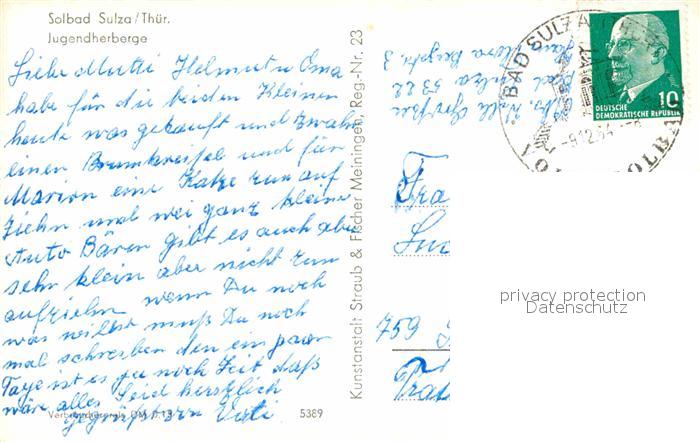 Solbad Sulza/Thür.
Jugendherberge
Liebe Mutti Helmut u Oma
habe für die beiden Kleinen
heute was gekauft und zwahr
einen Brumkreisel und für
Marion eine Katze zum auf
ziehn und wei ganz kleine
Auto Bären gibt es auch aber
sehr klein aber nicht zum
aufziehn wenn Du noch
was willst muß Du noch
mal schreiben den ein paar
Tage ist es ja noch Zeit daß
wäre alles Seid herzlich
gegrüßt von Vati
5389
Kunstanstalt Straub & Fischer Meiningen, Reg.-Nr. 23
Bad Sulza 5322
BAD SULZA
-9.12.64
DEUTSCHE
DEMOKRATISCHE REPUBLIK
10
759
privacy protection
Datenschutz